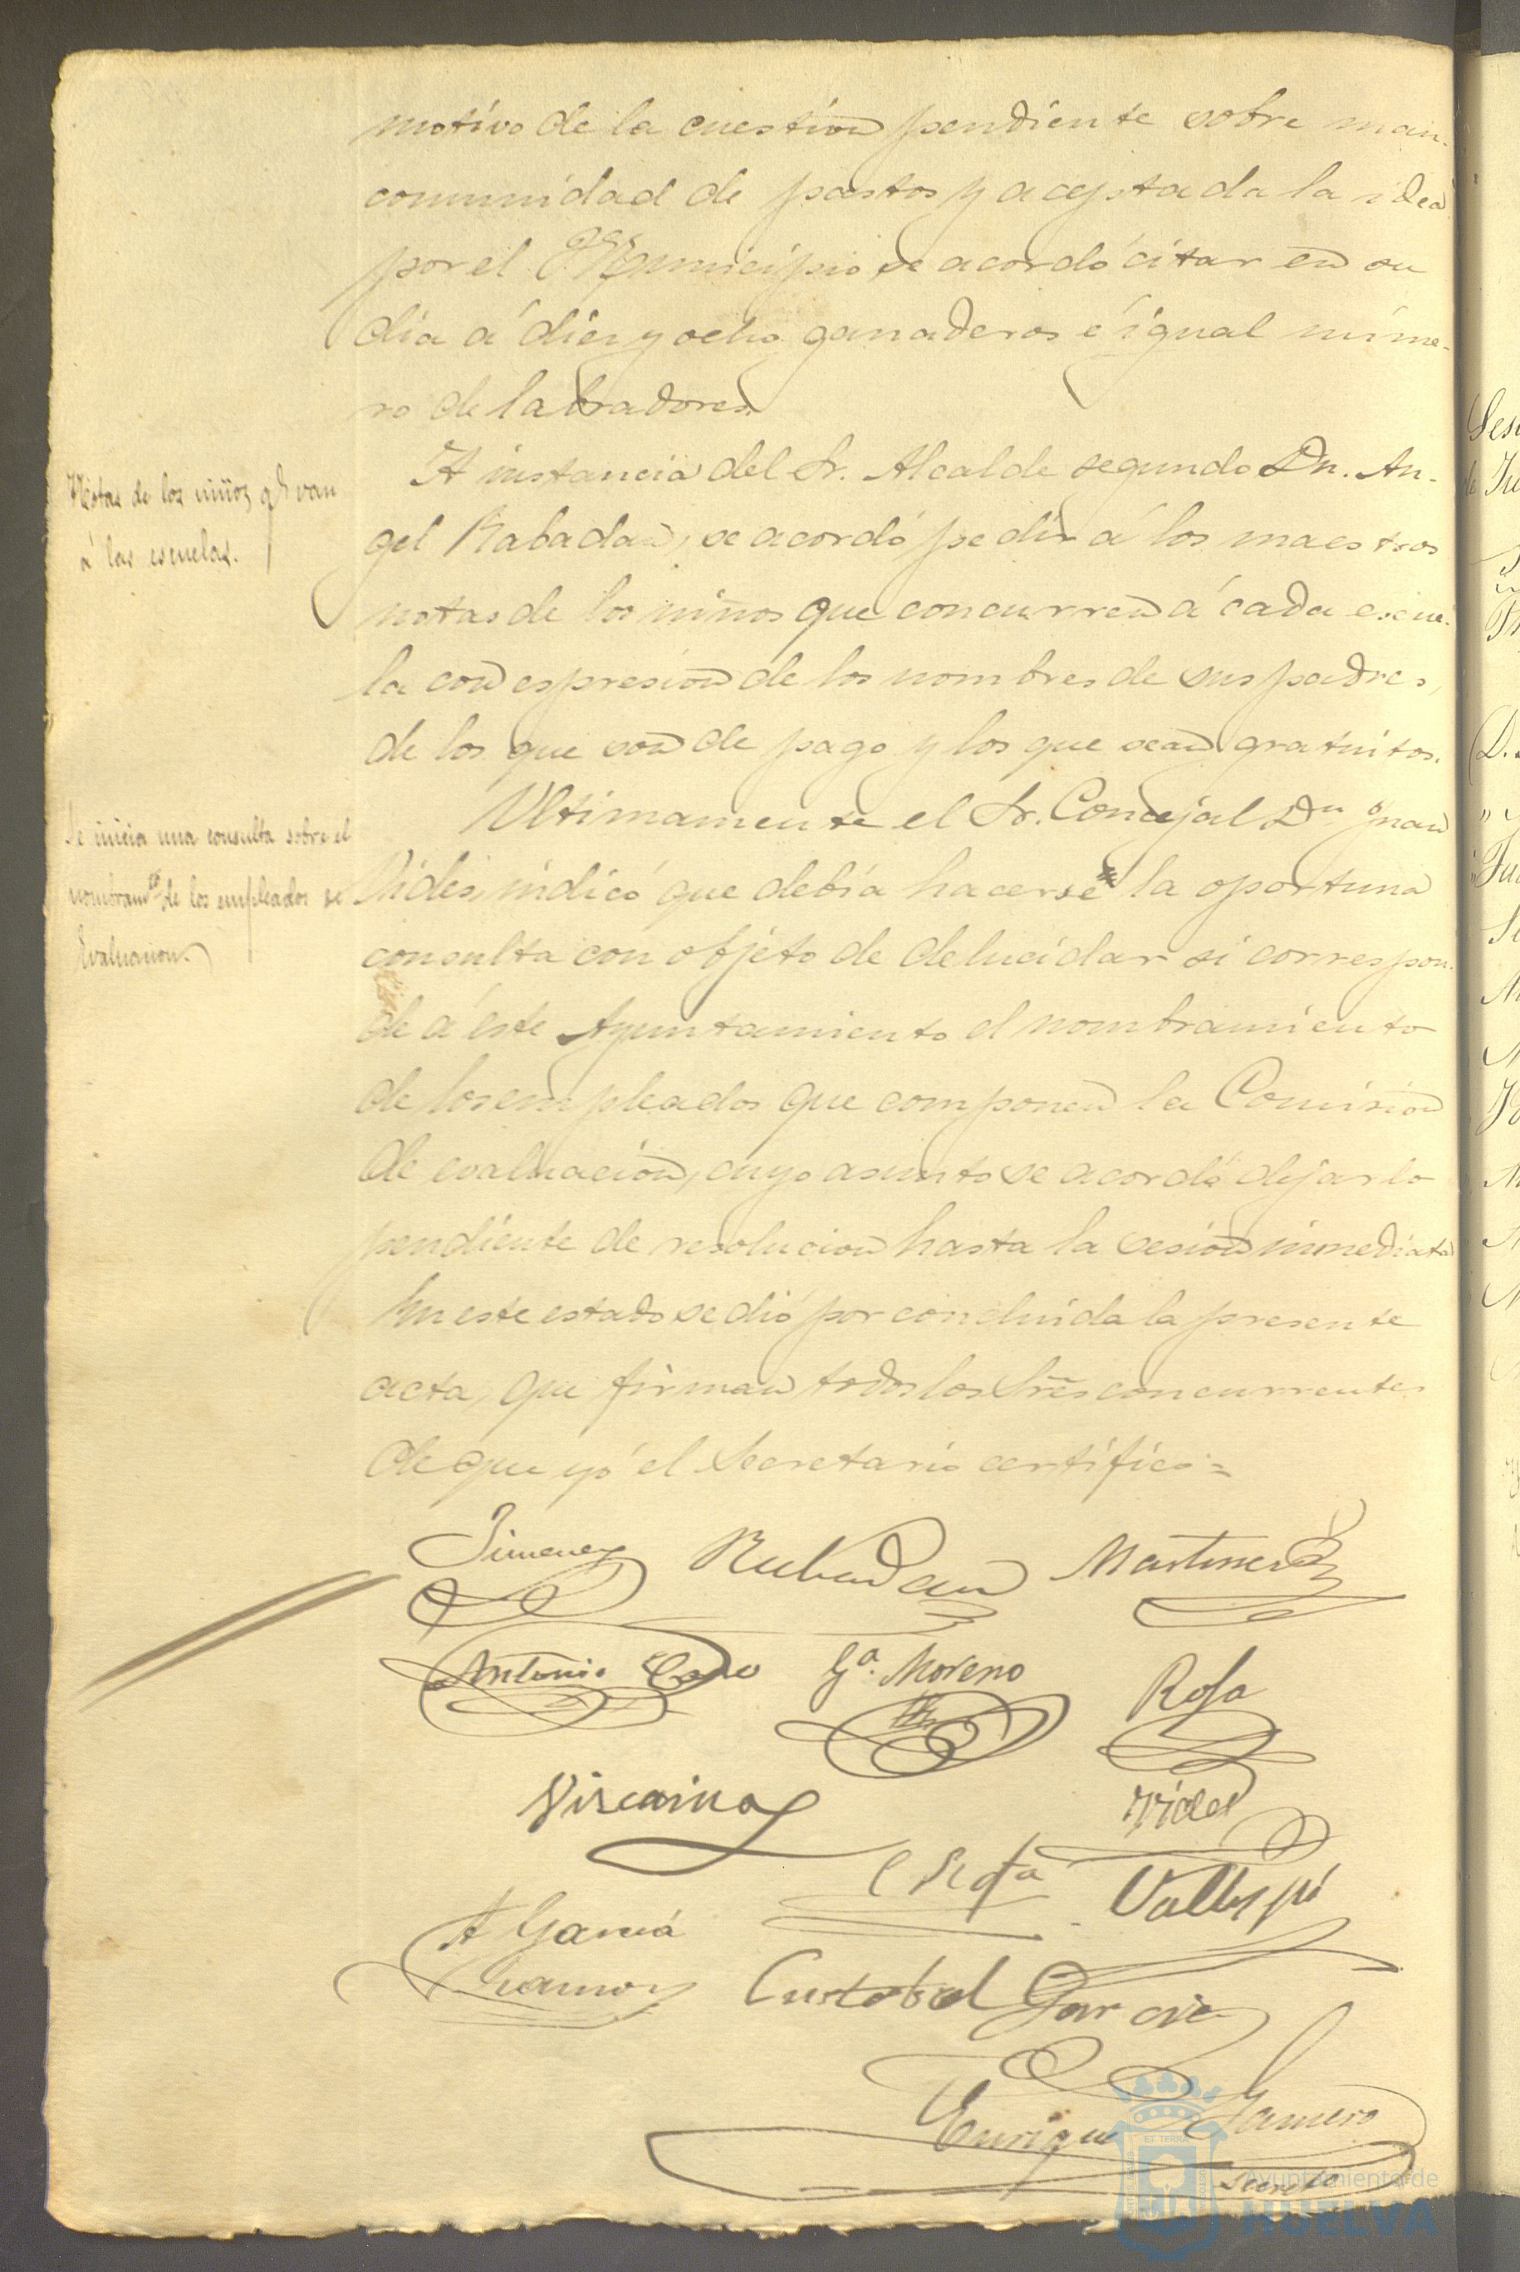 motivo de la cuestion pendiente sobre man-
comunidad de pastos y aceptada la idea
por el Municipio, se acordó citar en su
dia á diez y ocho ganaderos é igual núme-
ro de labradores.
Notas de los niños qe. van
á las escuelas.
A instancia del Sr. Alcalde segundo Dn. An-
gel Rabadan, se acordó pedir á los maestros
notas de los niños que concurren á cada escue-
la con espresion de los nombres de sus padres,
de los que son de pago y los que sean gratuitos.
Se inicia una consulta sobre el
nombramto. de los empleados de
Evaluacion.
Ultimamente el Sr. Concejal Dn Juan
Vides, indicó que debía hacerse la oportuna
consulta con objeto de delucidar si correspon-
de á éste Ayuntamiento el nombramiento
de los empleados que componen la Comision
de evaluacion, cuyo asunto se acordó dejarlo
pendiente de resolucion hasta la sesion inmediata
En este estado se dió por concluida la presente
acta, que firman todos los Sres concurrentes
de que yó el Secretario certifico=
Jimenez Rabadan Martinez
Antonio Cano Ga. Moreno Rofa
Vizcaino Vides
Vallespi
A Garcia
Ramos Cristobal Garcia
Enrique
Secreto
Ayuntamiento de
HUELVA